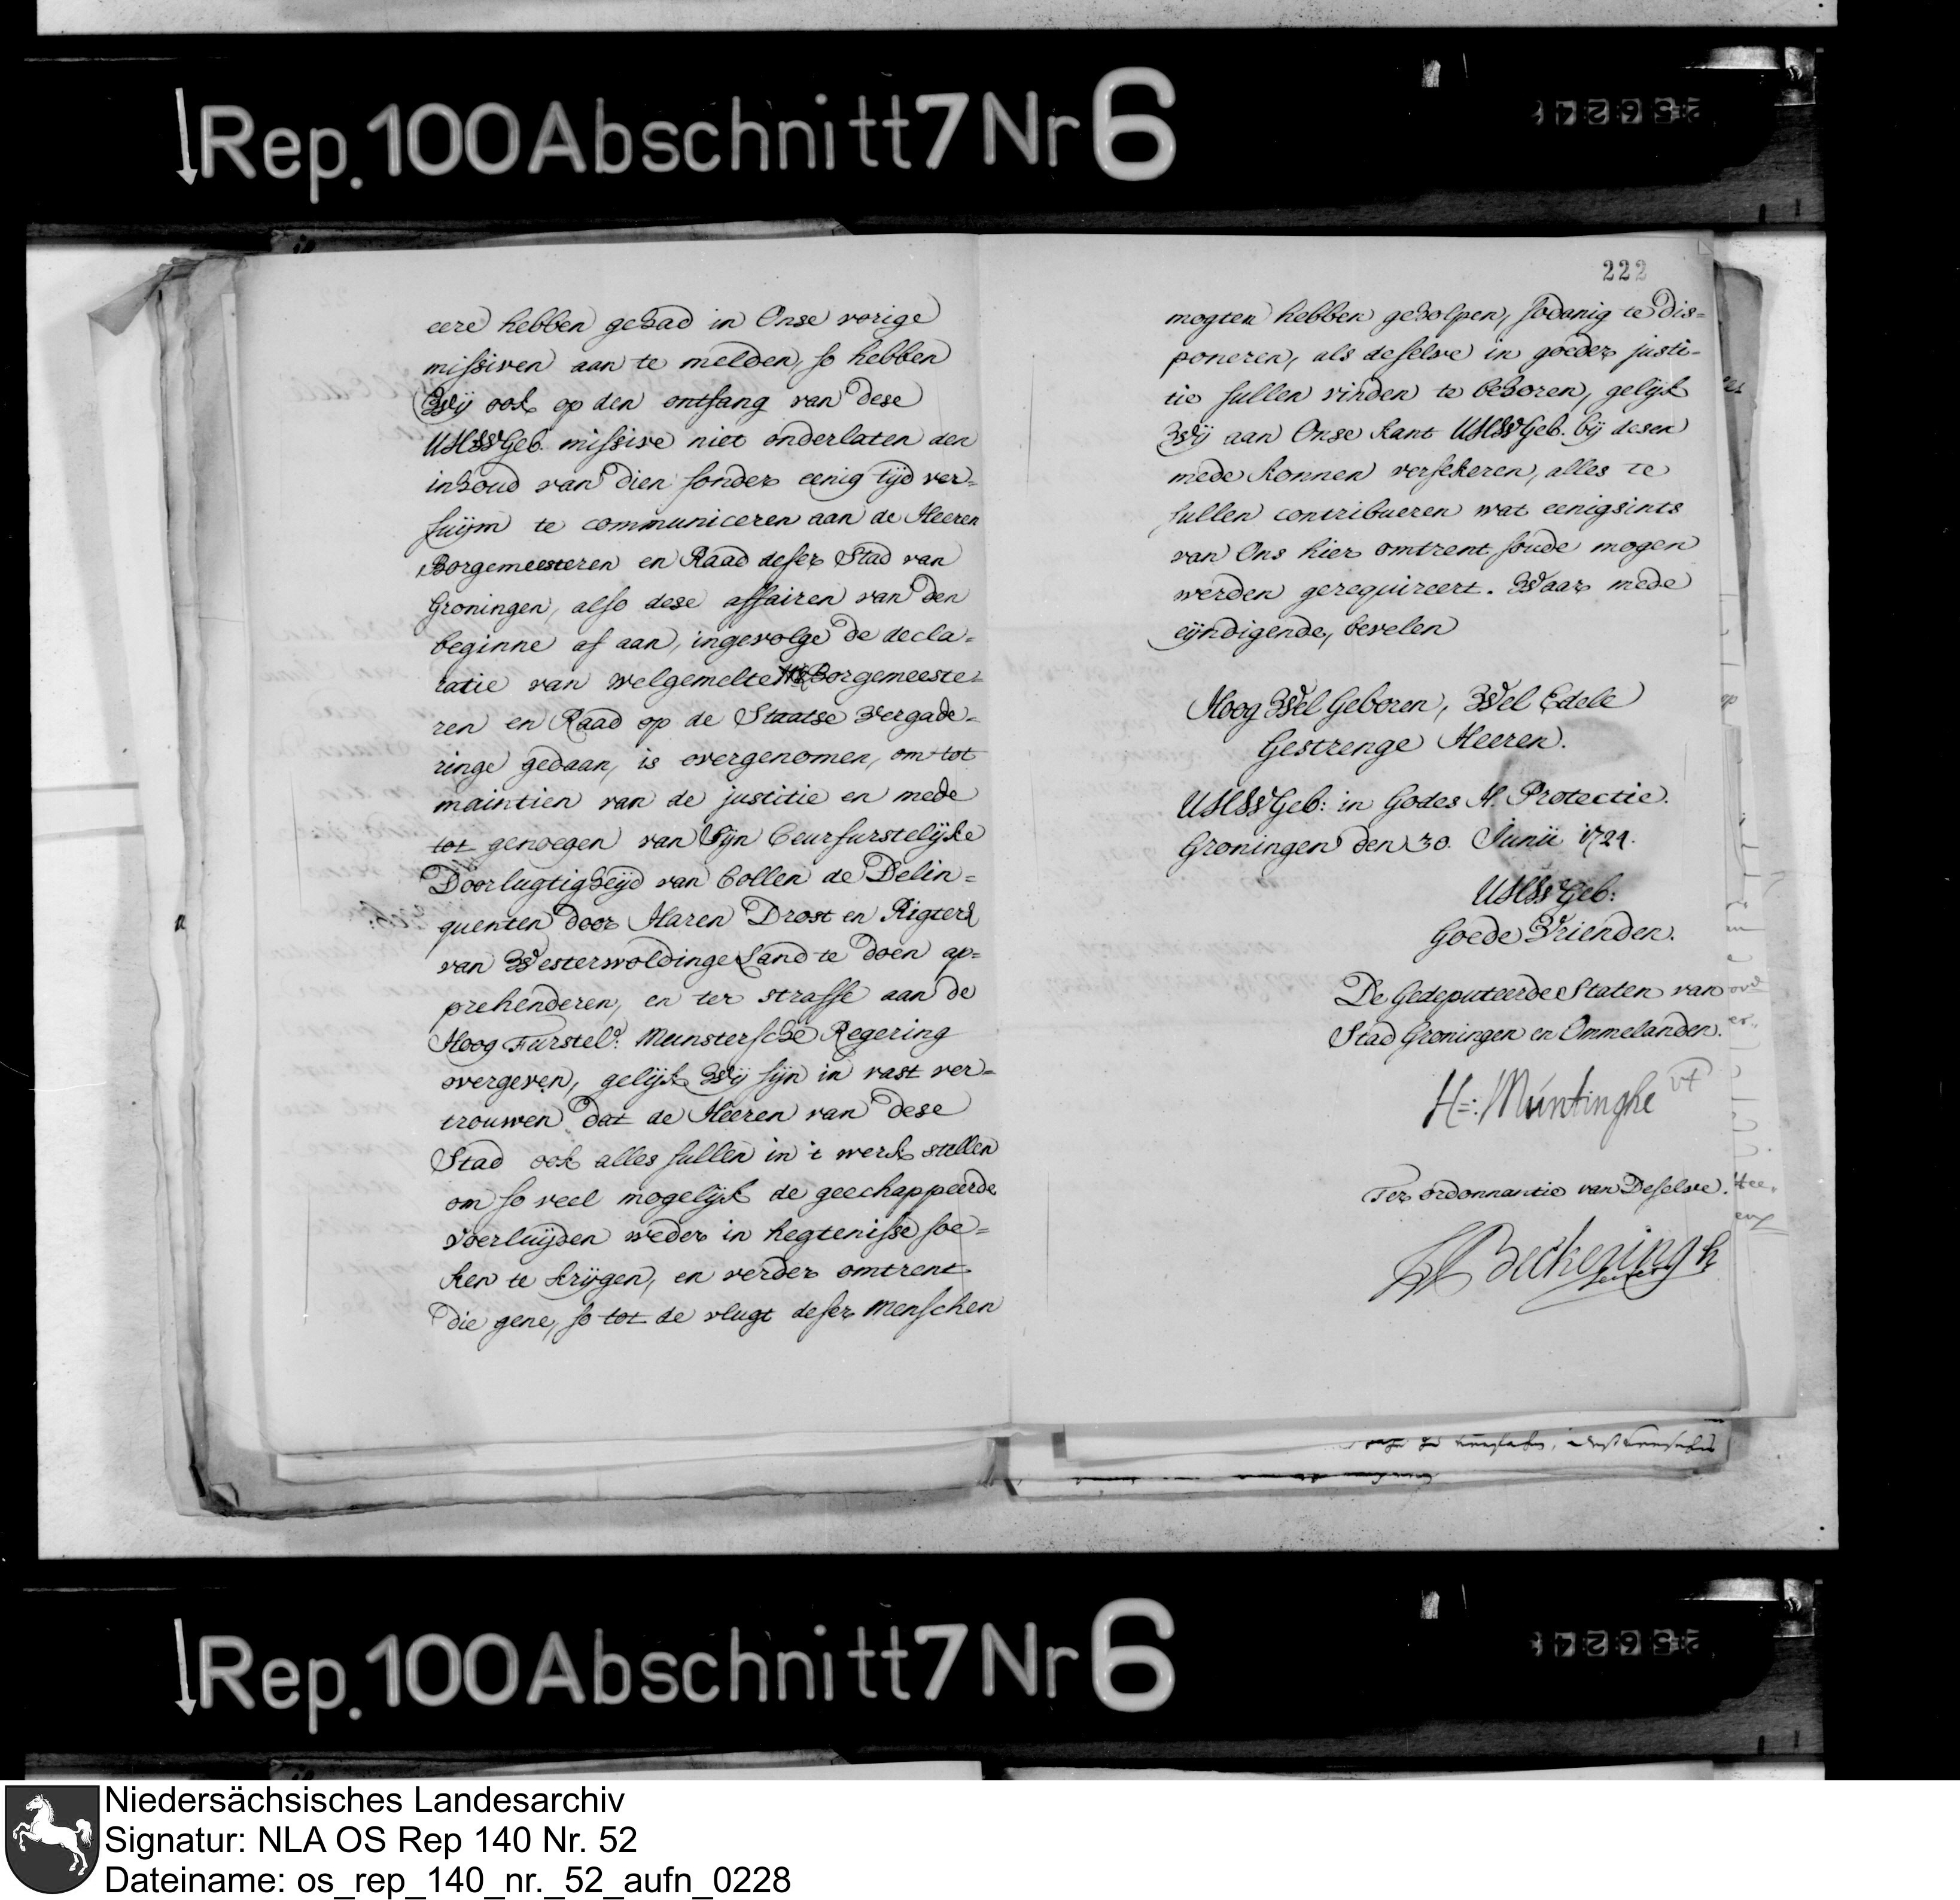 Rep. 100 Abschnitt 7 Nr 6
25624
eere hebben gehad in Onse vorige
missiven aan te melden, so hebben
Wij ook op den ontfang van dese
UHWGeb. missive niet onderlaten den
inhoud van dien sonder eenig tijd ver=
suijm te communiceren aan de Heeren
Borgemeesteren en Raad deser Stad van
Groningen, also dese affairen van den
beginne af aan, ingevolge de decla=
ratie van welgemelte Borgemeeste=
ren en Raad op de Staatse Vergade=
ringe gedaan, is overgenomen, om tot
maintien van de justitie en mede
tot genoegen van Sijn Ceurfurstelijke
Doorlugtigheijd van Collen de Delin=
quenten door Haren Drost en Rigter
van Westerwoldinge Land te doen ap=
prehenderen, en ter straffe aan de
Hoog Furstel: Munstersche Regering
overgeven, gelijk Wij sijn in vast ver=
trouwen dat de Heeren van dese
Stad ook alles sullen in 't werk stellen
om so veel mogelijk de geechappeerde
Voerluijden weder in hegtenisse soe=
ken te krijgen, en verder omtrent
die gene, so tot de vlugt deser Menschen
222
mogten hebben geholpen, sodanig te dis=
poneren, als deselve in goeder justi=
tie sullen vinden te behoren, gelijk
Wij aan Onse kant UHWGeb. bij desen
mede konnen versekeren, alles te
sullen contribueren wat eenigsints
van Ons hier omtrent soude mogen
werden gerequireert. Waar mede
eijndigende, bevelen
Hoog Wel Geboren, Wel Edele
Gestrenge Heeren.
UHWGeb: in Godes H. Protectie.
Groningen den 30. Junii 1724.
UHWGeb:
Goede Vrienden.
De Gedeputeerde Staten van
Stad Groningen en Ommelanden.
H: Muntinghe vt
Ter ordonnantie van Deselve.
Beckeringh
Rep. 100 Abschnitt 7 Nr 6
25624
Niedersächsisches Landesarchiv
Signatur: NLA OS Rep 140 Nr. 52
Dateiname: os_rep_140_nr._52_aufn_0228